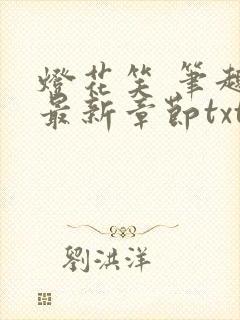 燈花笑 筆趣
最新章節txt
劉洪洋